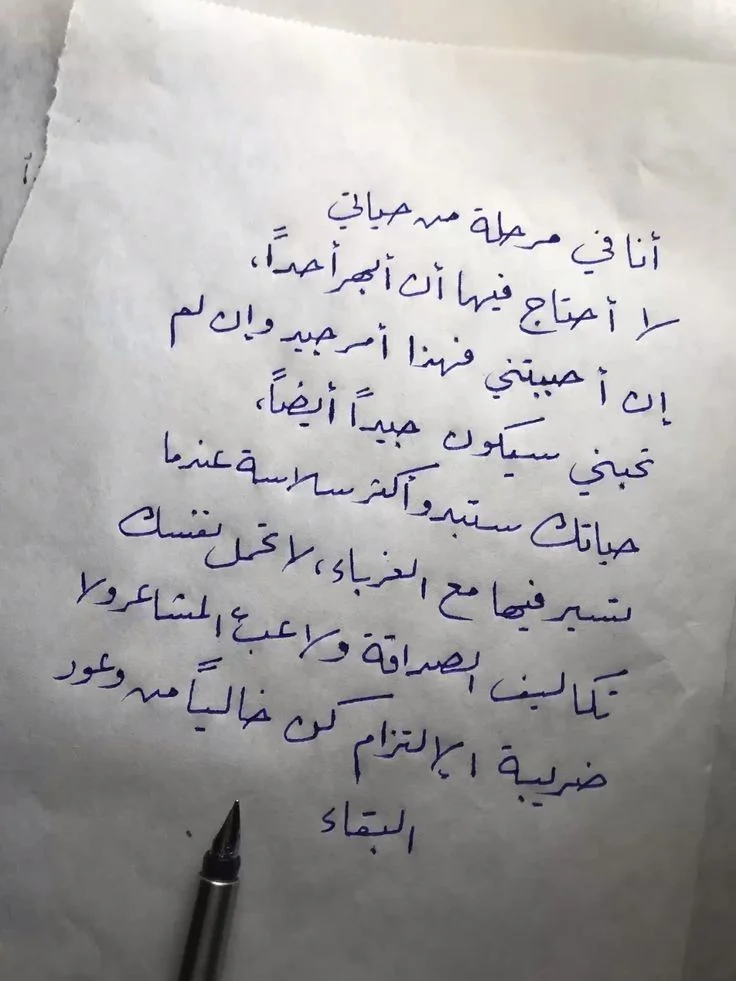 أنا في مرحلة من حياتي
لا أحتاج فيها أن أبهر أحداً،
إن أحببتني فهذا أمر جيد وإن لم
تحبني سيكون جيداً أيضاً،
حياتك ستبدو أكثر سلاسة عندما
تسير فيها مع الغرباء، لا تحمل نفسك
تكاليف الصداقة ولا عبء المشاعر ولا
ضريبة الإلتزام كن خالياً من وعود
البقاء